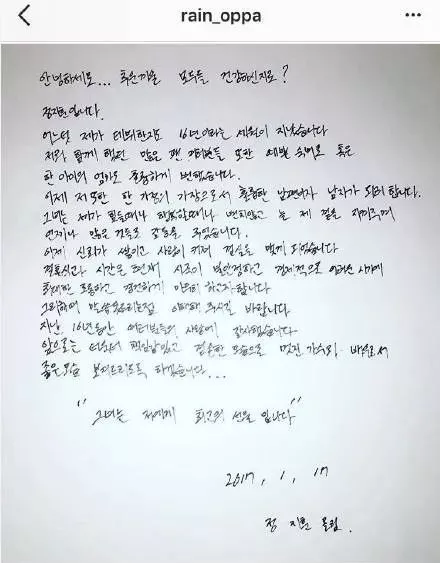 rain_oppa
안녕하세요... 추운겨울 모두들 건강하신지요?
정지훈입니다.
어느덧 제가 데뷔한지도 16년이라는 세월이 지났습니다
저와 함께 했던 많은 팬 여러분들 또한 예쁜 숙녀로 혹은
한 아이의 엄마로 훌륭하게 변했습니다.
이제 저 또한 한 가정의 가장으로서 훌륭한 남편이자 남자가 되려 합니다.
그녀는 제가 힘들때나 행복할때나 변치않고 늘 제 곁을 지켜주며
언제나 많은 것들로 감동을 주었습니다.
이제 신뢰가 쌓이고 사랑이 커져 결실을 맺게 되었습니다
결혼식과 시간은 현재 시국이 불안정하고 경제적으로 어려운 시기에
최대한 조용하고 경건하게 미루려 하고자 합니다
그리하여 말씀 못드리는점 이해해 주시길 바랍니다
지난 16년동안 여러분들의 사랑에 감사했습니다
앞으로는 더욱더 책임감있고 겸손한 모습으로 멋진 가수와 배우로서
좋은모습 보여드리도록 하겠습니다...
"그녀는 저에게 최고의 선물 입니다"
2017, 1, 17
정 지훈 올림.